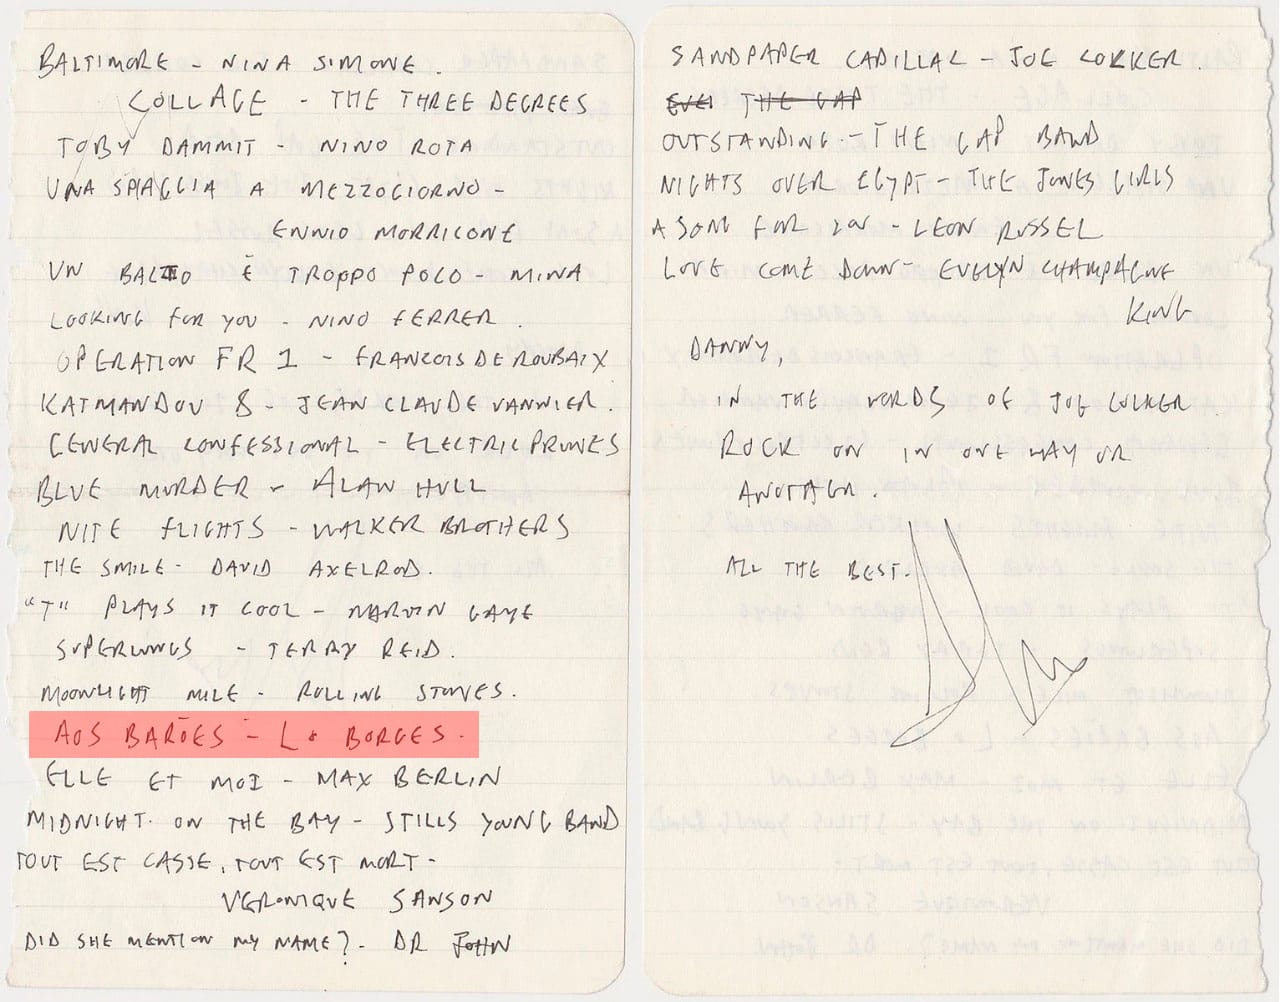 BALTIMORE - NINA SIMONE.
COLLAGE - THE THREE DEGREES
TOBY DAMMIT - NINO ROTA
UNA SPIAGGIA A MEZZOGIORNO -
ENNIO MORRICONE
UN BACIO È TROPPO POCO - MINA
LOOKING FOR YOU - NINO FERRER.
OPERATION FR 1 - FRANCOIS DE ROUBAIX
KATMANDOU 8 - JEAN CLAUDE VANNIER.
GENERAL CONFESSIONAL - ELECTRIC PRUNES
BLUE MURDER - ALAN HULL
NITE FLIGHTS - WALKER BROTHERS
THE SMILE - DAVID AXELROD.
"T" PLAYS IT COOL - MARVIN GAYE
SUPERLUNGS - TERRY REID.
MOONLIGHT MILE - ROLLING STONES.
AOS BARÕES - LÔ BORGES.
ELLE ET MOI - MAX BERLIN
MIDNIGHT ON THE BAY - STILLS YOUNG BAND
TOUT EST CASSE, TOUT EST MORT -
VERONIQUE SANSON
DID SHE MENTION MY NAME? - DR JOHN
SANDPAPER CADILLAC - JOE COCKER.
THE GAP
OUTSTANDING - THE GAP BAND
NIGHTS OVER EGYPT - THE JONES GIRLS
A SONG FOR YOU - LEON RUSSEL
LOVE COME DOWN - EVELYN CHAMPAGNE
KING
DANNY,
IN THE WORDS OF JOE COCKER
ROCK ON IN ONE WAY OR
ANOTHER.
ALL THE BEST.